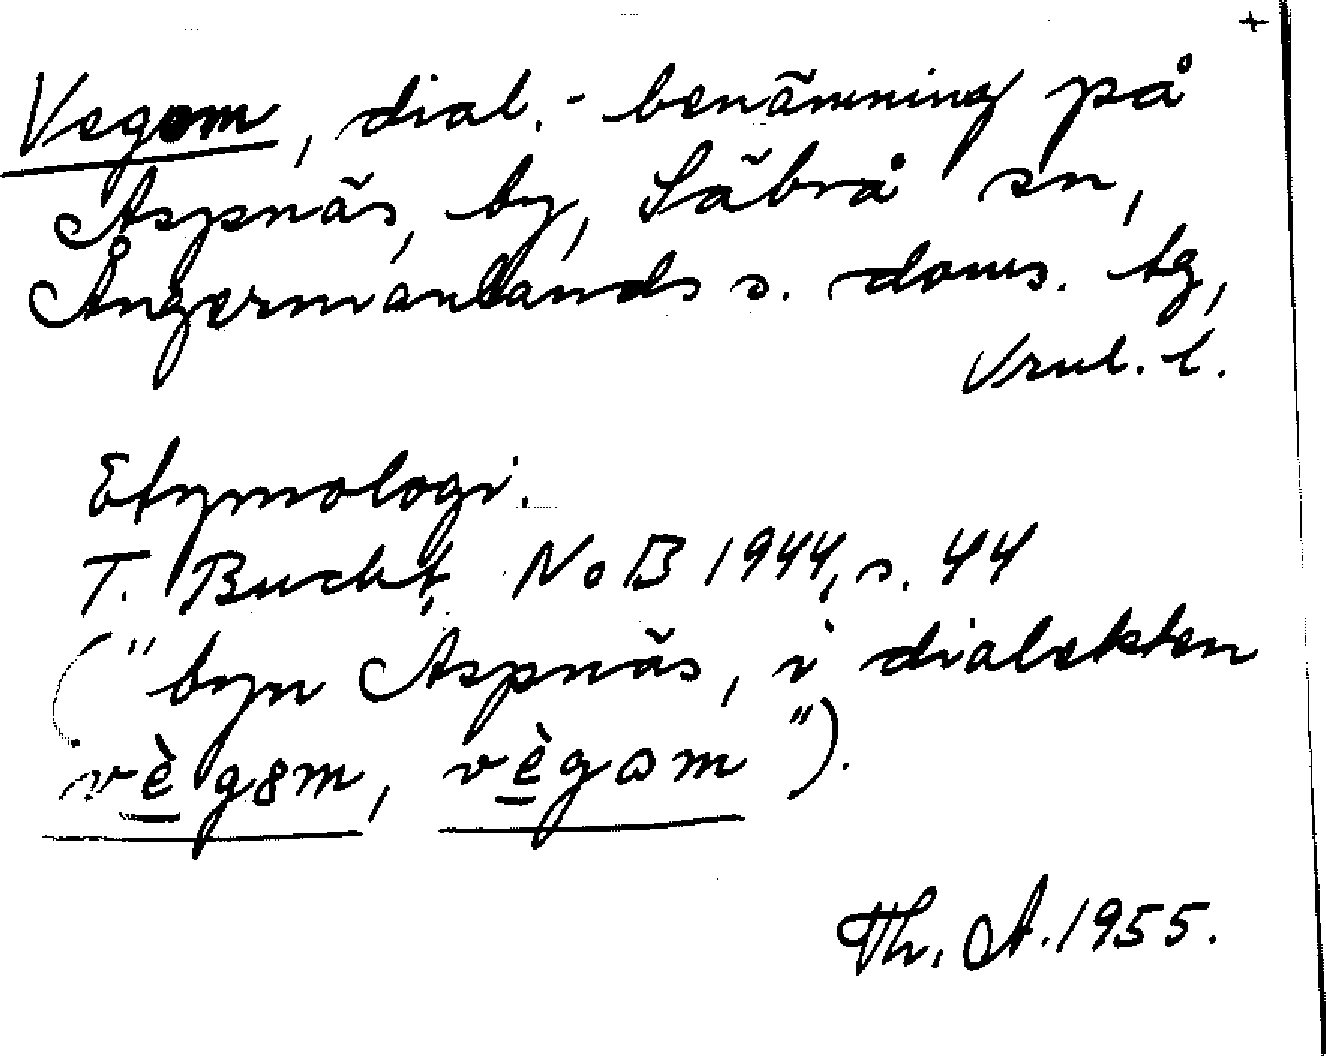 +
Vegom, dial.-benämning på
Aspnäs, by, Säbrå sn,
Ångermanlands s. doms. tg,
Vrnl. l.
Etymologi.
T. Bucht, NoB 1944, s. 44
("byn Aspnäs, i dialekten
vègɵm, vègom").
Th. A. 1955.